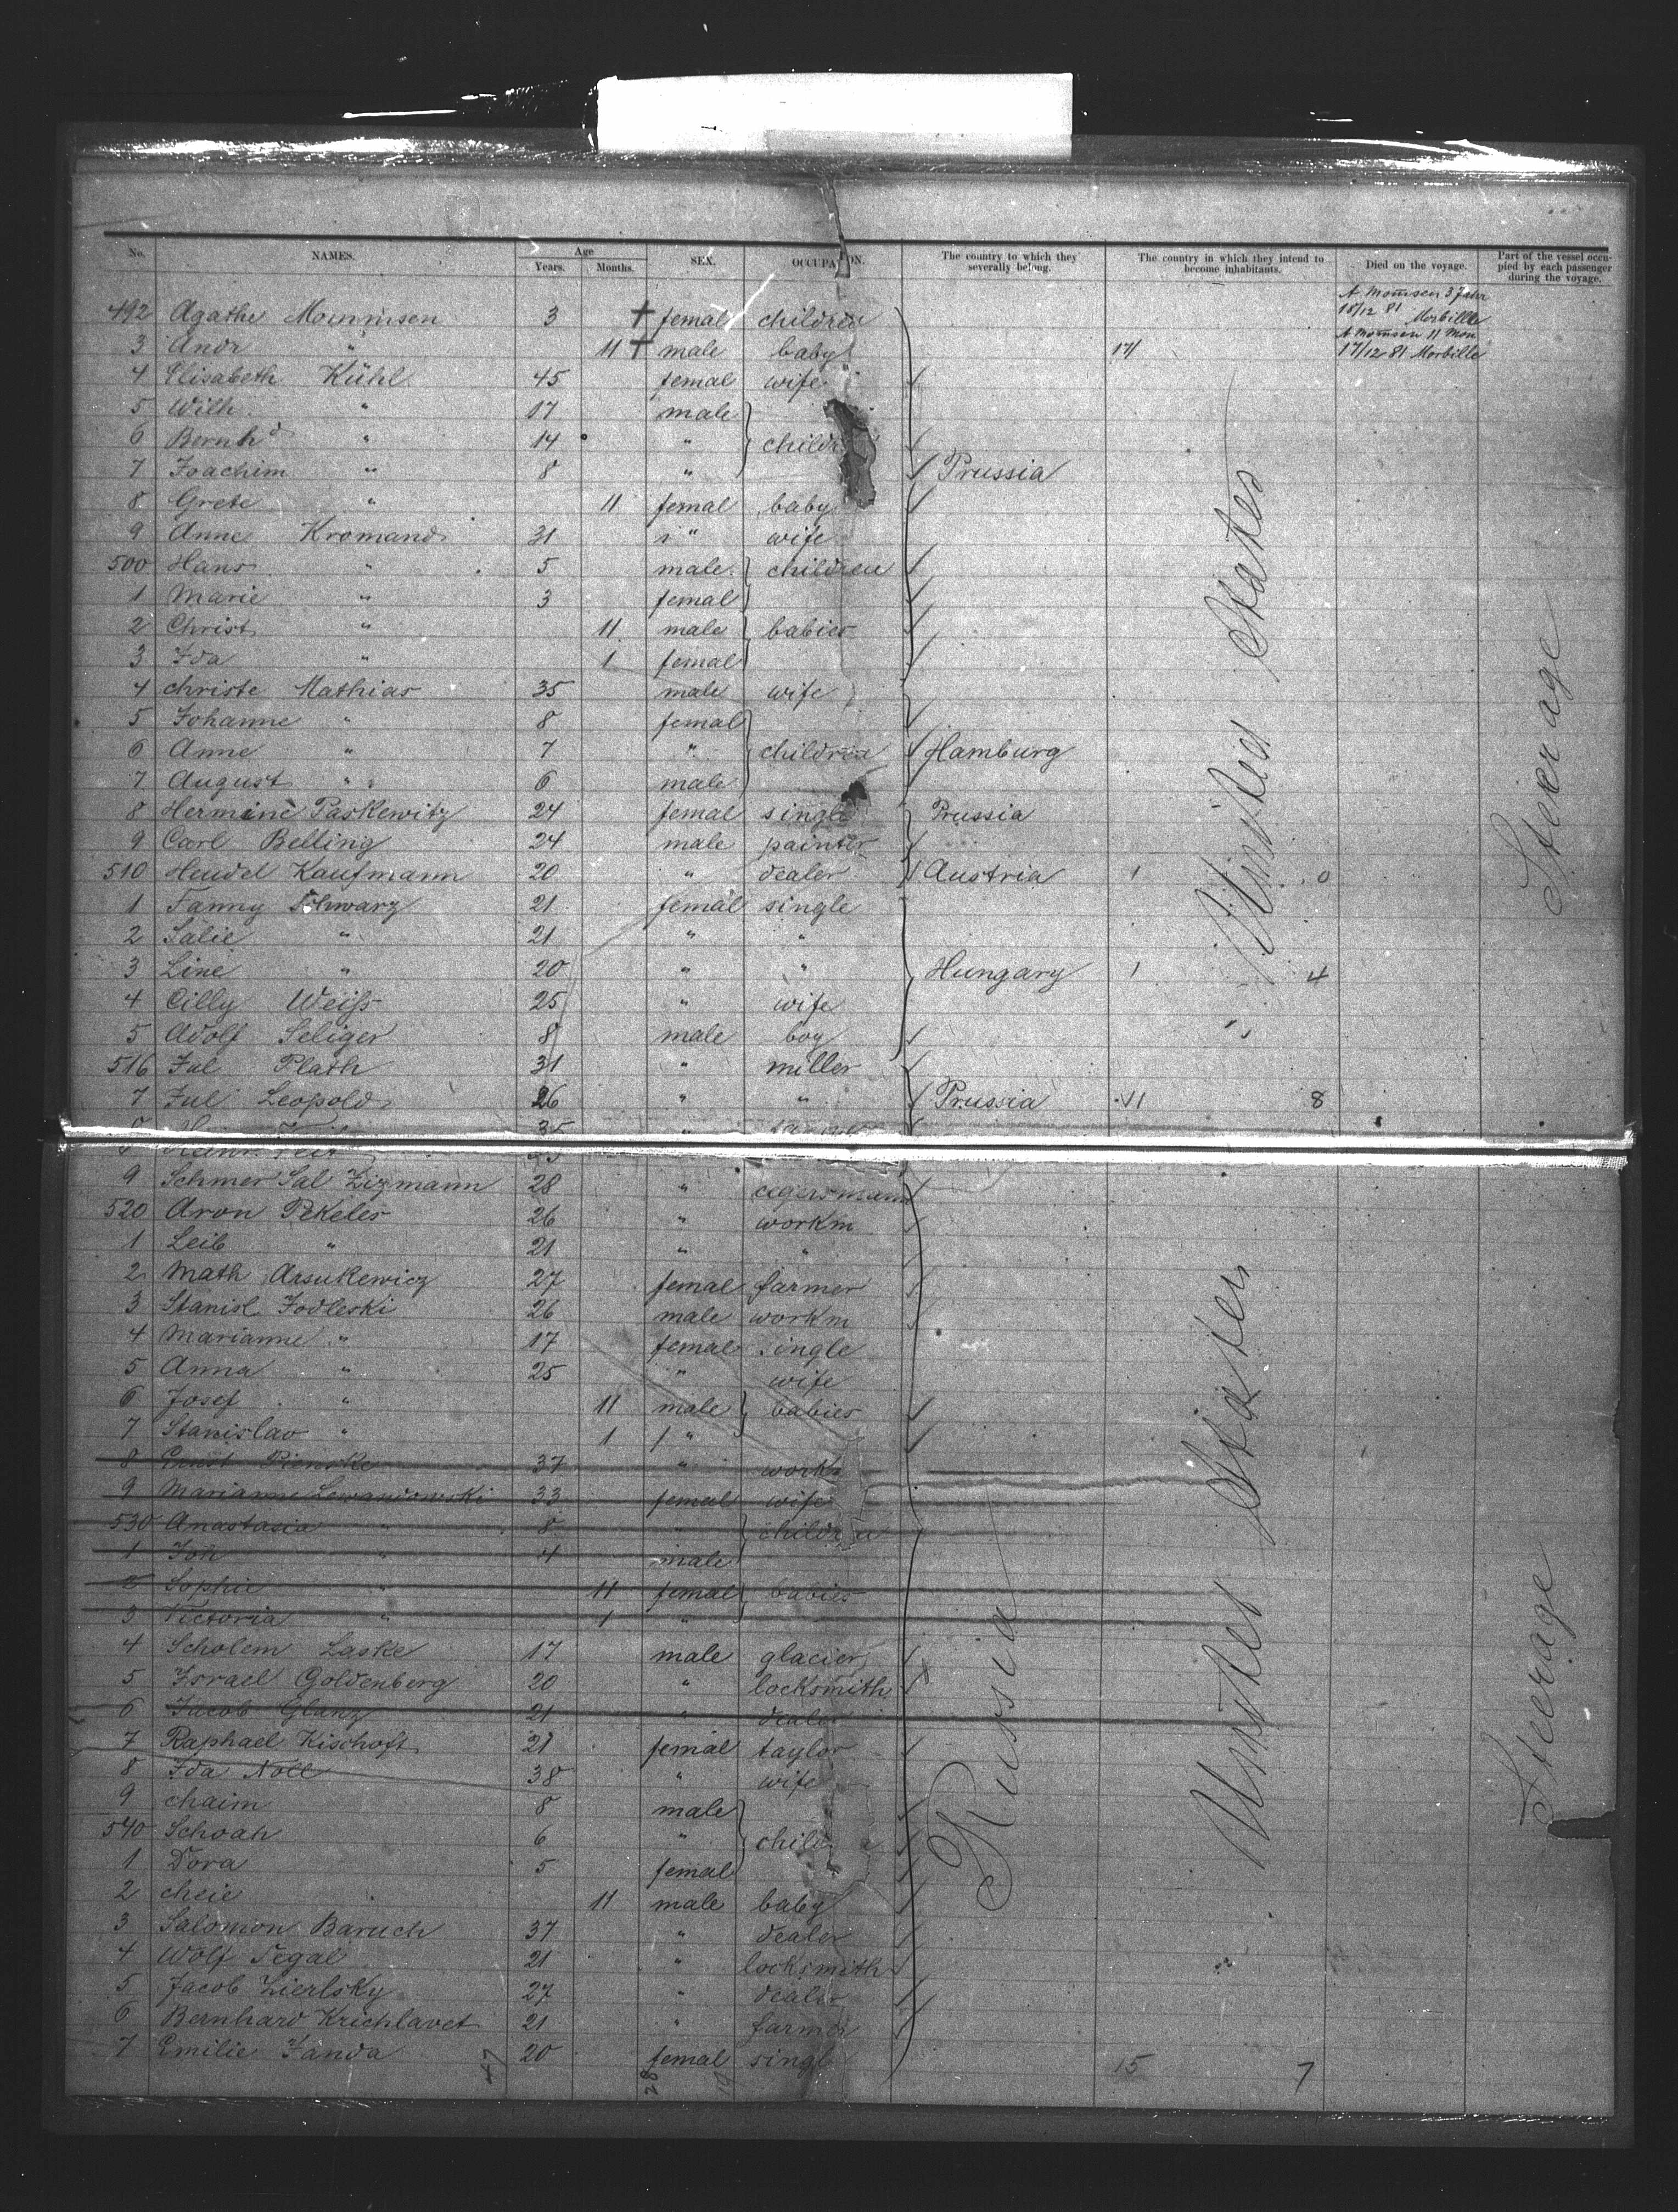 No. NAMES. Age Years. Months. SEX. OCCUPATION. The country to which they severally belong. The country in which they intend to become inhabitants. Died on the voyage. Part of the vessel occupied by each passenger during the voyage.
492 Agathe Mommsen 3 + femal children A Momsen 3 Jahr 15/12 81 Morbille
3 Andr " 11 + male baby 17/ A Momsen 11 Mon 17/12 81 Morbille
4 Elisabeth Kühl 45 femal wife
5 Wilh. " 17 male
6 Bernhd " 14 " childr
7 Joachim " 8 " Prussia
8 Grete " 11 femal baby
9 Anne Kromand 31 " wife
500 Hans " 5 male children
1 Marie " 3 femal
2 Christ " 11 male babies
3 Ida " 1 femal
4 Christe Mathias 35 male wife
5 Johanne " 8 femal
6 Anne " 7 " children Hamburg
7 August " 6 male
8 Hermine Paskewitz 24 femal single Prussia
9 Carl Belling 24 male painter
510 Hendel Kaufmann 20 " dealer Austria 1 0
1 Fanny Schwarz 21 femal single
2 Salie " 21 " "
3 Line " 20 " " Hungary 1 4
4 Cilly Weiss 25 " wife
5 Adolf Seliger 8 male boy
516 Jul Plath 31 " miller
7 Jul Leopold 26 " " Prussia VI 8
United States
Steerage
8 35 "
9 Schmer Sal Zizmann 28 "
520 Aron Pekeles 26 " workm
1 Leib " 21 " "
2 Math Arsukewicz 27 femal farmer
3 Stanisl Jodleski 26 male workm
4 Marianne " 17 femal single
5 Anna " 25 " wife
6 Josef " 11 male babies
7 Stanislav " 1 "
8 Ernst Pienske 37 " workm
9 Marianne Lewandowski 33 femal wife
530 Anastasia " 8 " children
1 Joh " 4 male
2 Sophie " 11 femal babies
3 Victoria " 1 "
4 Scholem Laske 17 male glacier
5 Israel Goldenberg 20 " locksmith
6 Jacob Glanz 21 " dealer
7 Raphael Kischoft 21 femal taylor
8 Ida Noll 38 " wife
9 Chaim 8 male
540 Schoah 6 " childr
1 Dora 5 femal
2 Cheie 11 male baby
3 Salomon Baruch 37 " dealer
4 Wolf Segal 21 " locksmith
5 Jacob Lierlsky 27 " dealer
6 Bernhard Krichlavet 21 " farmer
7 Emilie Janda 20 femal singl
Russia
United States
Steerage
47 28 19 15 7